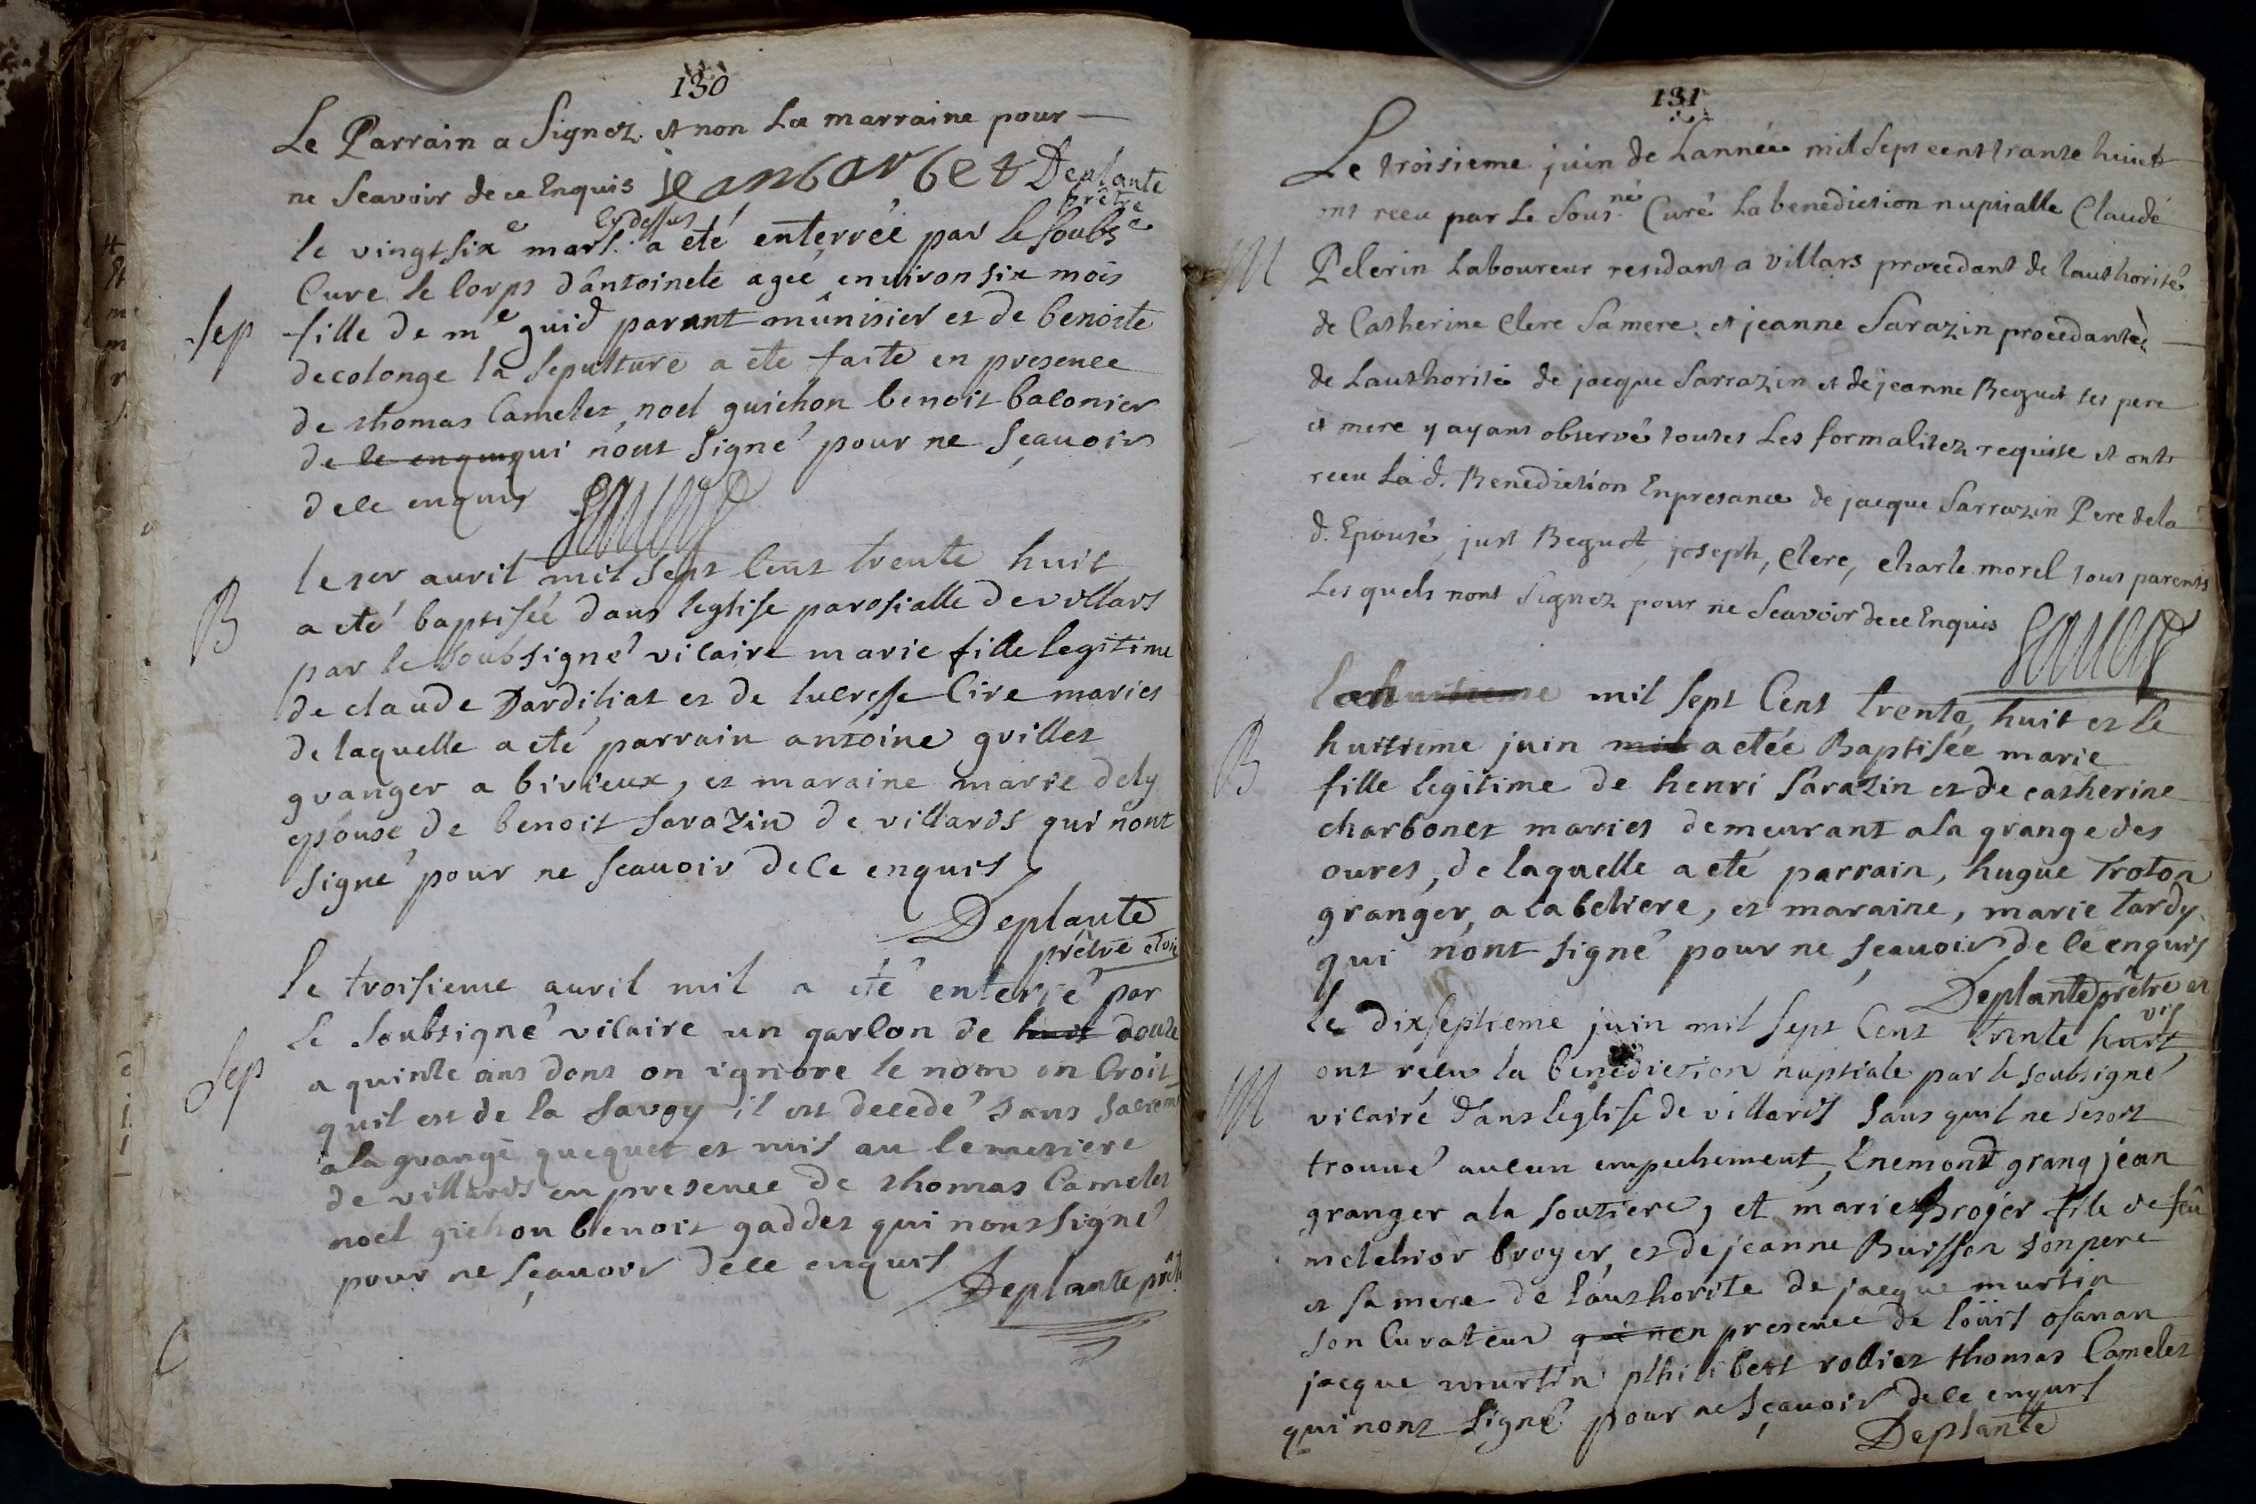 130
Le Parrain a Signez et non La marraine pour
ne Scavoir de ce Enquis jeanbarbet Deplante
prêtre
le vingt six e mars cy dessus a eté enterrée par le soubs e
Cure le Corps dântoinete agee environ six mois
Sep fille de m e guid parant mûnisier et de benoite
decolonge la sepulture a ete faite en presence
de thomas Camelet noel guichon benoit balonier
de le enquis qui nont signé pour ne sçauoir
de ce enquis
le 1er auril mil sept Cens trente huit
B a eté baptisée dans leglise parosialle de villars
par le soubsigné vicaire marie fille legitime
de claude Dardiliat et de lucresse Cire maries
de laquelle a eté parrain antoine grillet
granger a birieux, et maraine marie dely
epouse de benoit sarazin de villards qui nont
signé pour ne scauoir de ce enquis
Deplante
prêtre et vic
le troisieme auril mil a été enterré par
le soubsigné vicaire un garson de huit douze
Sep a quinze ans dont on ignore le nom on Croit
quil est de la savoy il est decedé sans sacrem
a la grange quequet et mis au semetiere
de villards en presence de thomas Camelet
noel gichon benoit gaddet qui nont signé
pour ne sçauoir de ce enquis
Deplante prêt
131
Le troisieme juin de Lannée mil Sept cent trante huict
ont receu par Le Sous né Curé La benediction nuptialle Claude
M Pelerin Laboureur residant a villars procedant de lauthorité
de Catherine Clerc Sa mere, et jeanne Sarazin procedante
de Lauthorité de jacque Sarrazin et de jeanne Beguet ses pere
et mere y ayant observé toutes Les formalitez requise et ont
receu La d. Benediction En presance de jacque Sarrazin Pere de la
d. Epousé, just Beguet, joseph, Clerc, Charle morel tous parents
Les quels nont Signez pour ne Scavoir de ce Enquis
huitieme mil sept Cent trente huit et le
B huitieme juin mil a etée Baptisée marie
fille legitime de henri Sarazin et de catherine
charbonet maries demeurant a la grange des
oures, de laquelle a eté parrain, hugue Troton
granger, a la beliere, et maraine, marie tardy
qui nont signé pour ne sçauoir de ce enquis
Deplante prêtre et
vis
le dixseptieme juin mil sept Cent trente huit
ont receu la benediction nuptiale par le soubsigné
M vicairé dans leglise de villards sans quil ne se soit
trouué aucun empechement, Enemond grang jean
granger a la soutiere, et marie Brojer file de feu
melchior broyer, et de jeanne Buisson son pere
et sa mere de láuthorite de jacque murtin
son Curateur qui n en presence de loüis osanan
jacque murtin philibert rollier thomas Camelet
qui nont signé pour ne sçauoir de ce enquis
Deplante